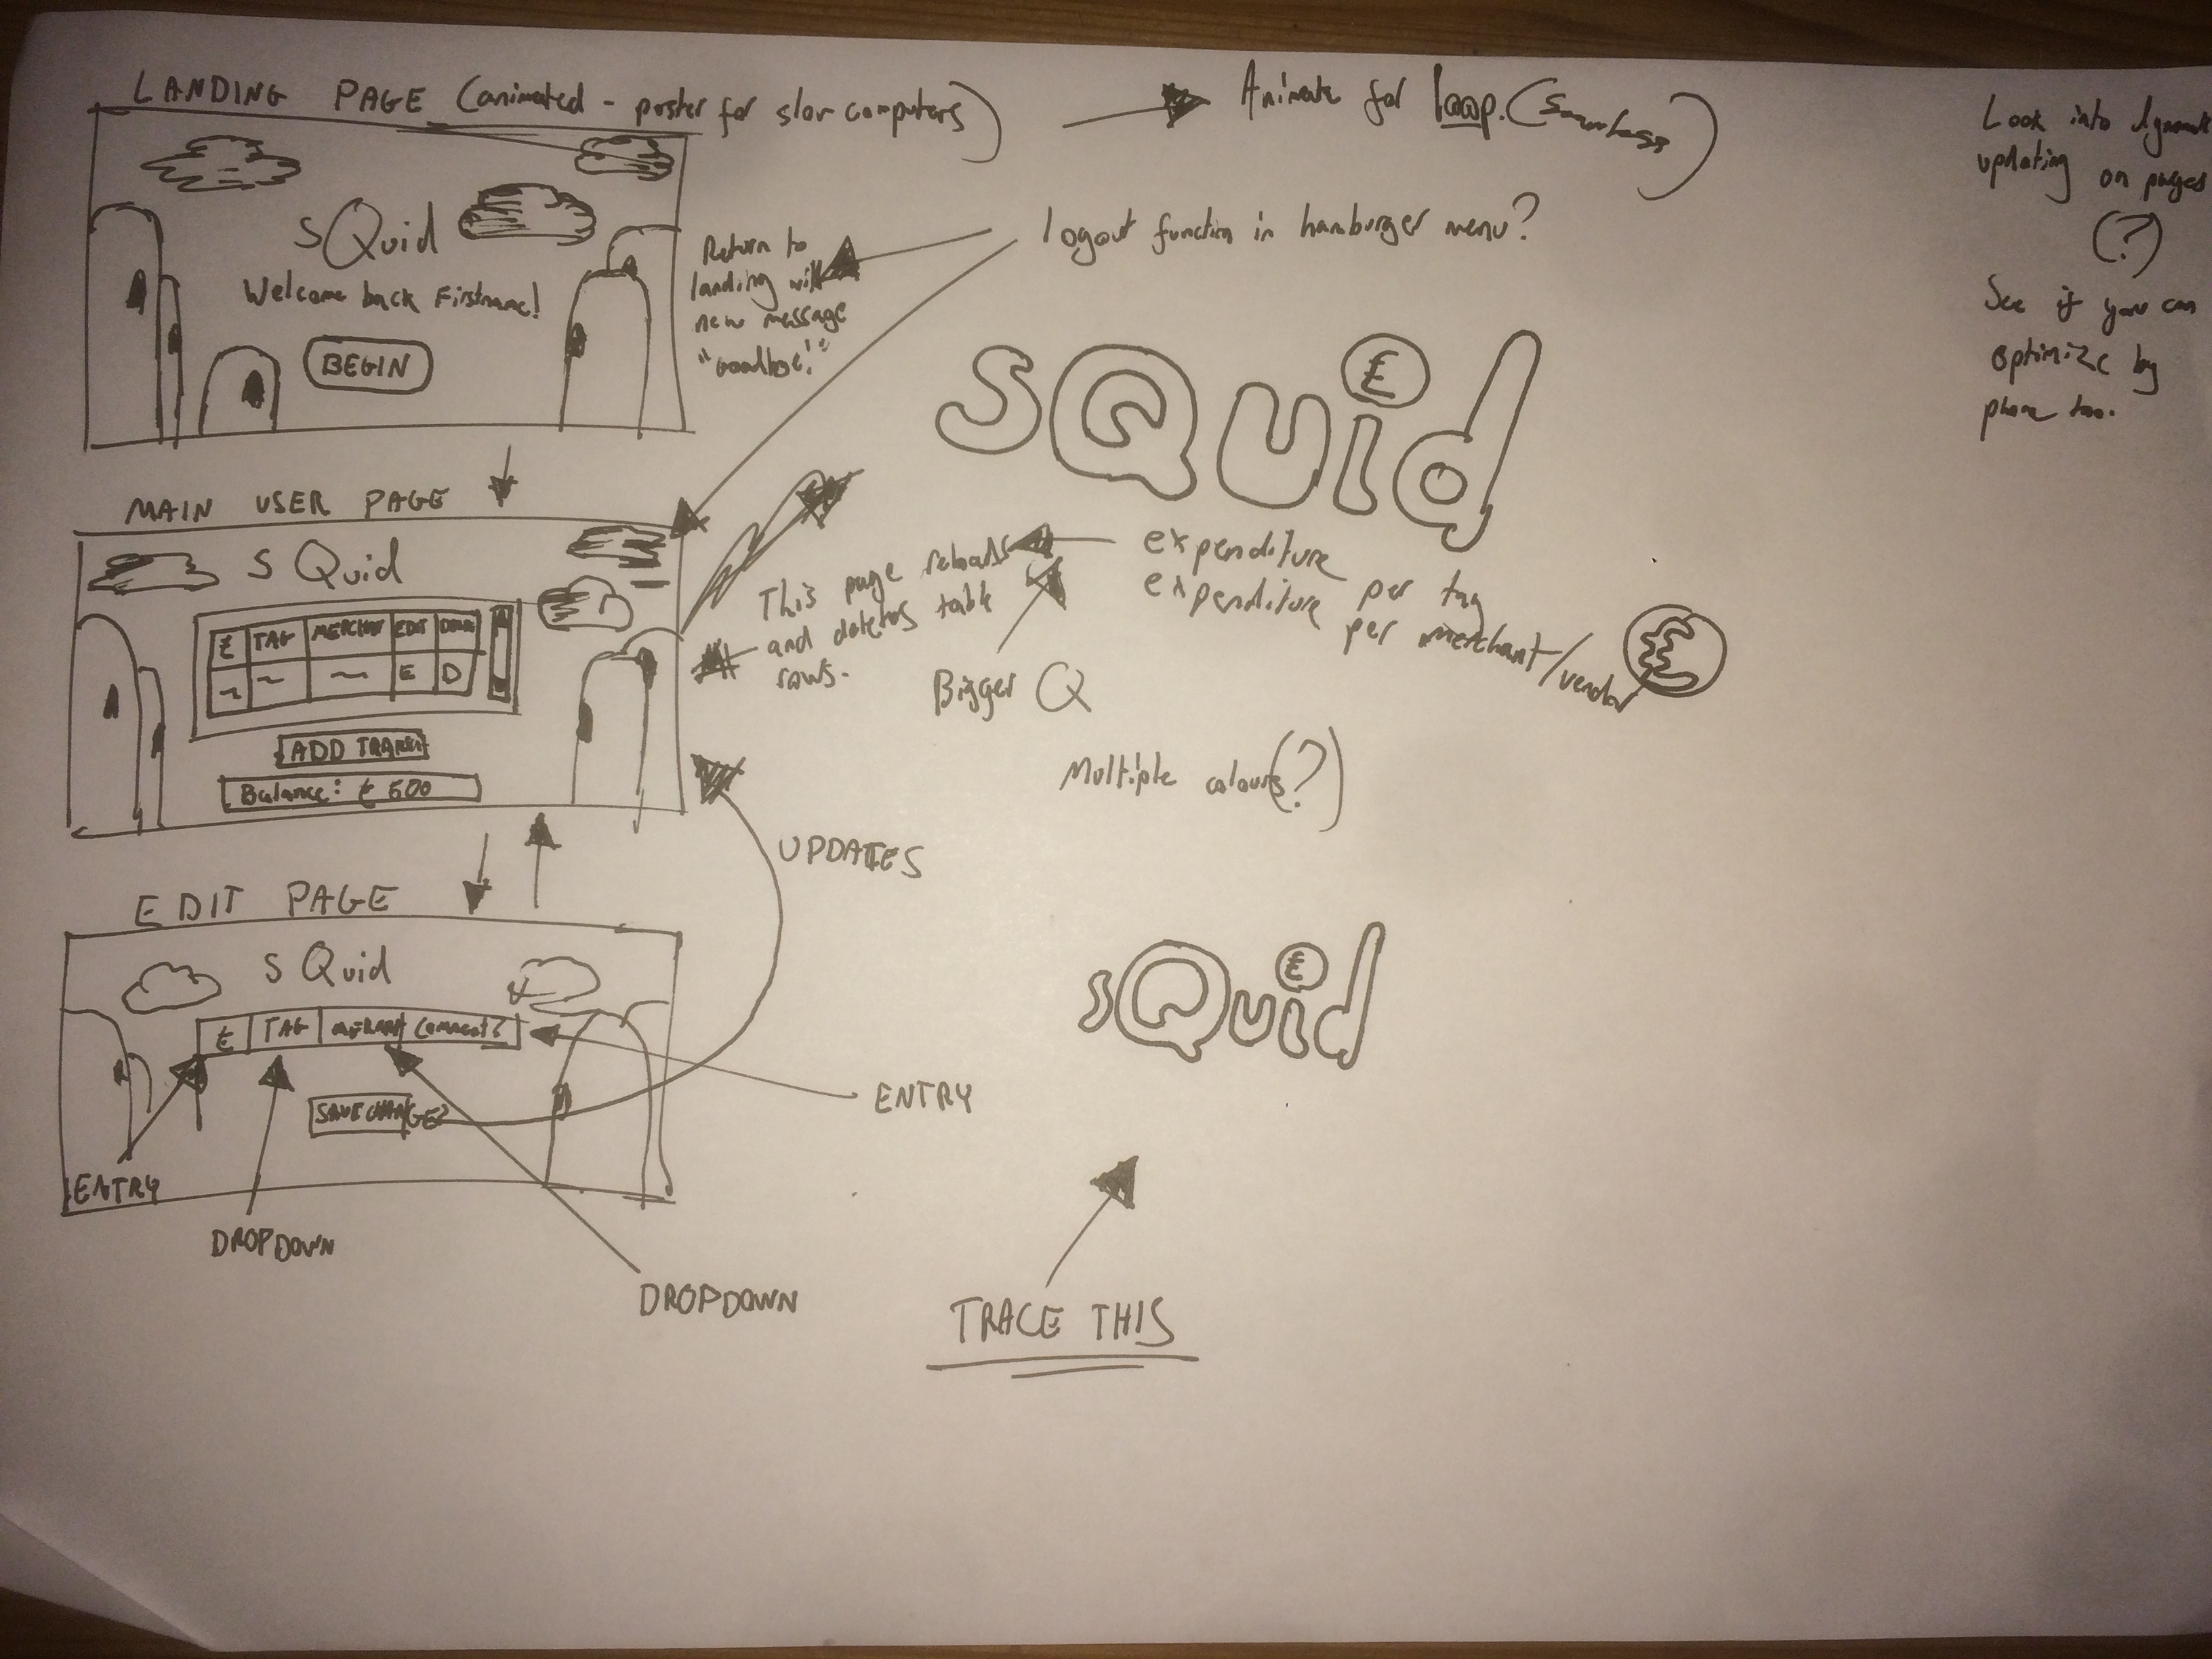 LANDING PAGE (animated - poster for slow computers)
Animate for loop. (Seamless)
sQuid
Welcome back Firstname!
BEGIN
Return to
landing with
new message
"Goodbye!"
logout function in hamburger menu?
Look into dynamic
updating on pages
(?)
See if you can
optimize by
phone too.
sQuid
£
MAIN USER PAGE
sQuid
£ TAG MERCHANT EDIT
E D
ADD TRANS
Balance: £ 500
This page reloads
and deletes table
rows.
expenditure per tag
expenditure per merchant/vendor
£
Bigger Q
Multiple colours(?)
UPDATES
EDIT PAGE
sQuid
£ TAG MERCHANT Comment?
SAVE CHANGES
ENTRY
ENTRY
DROPDOWN
DROPDOWN
sQuid
£
TRACE THIS